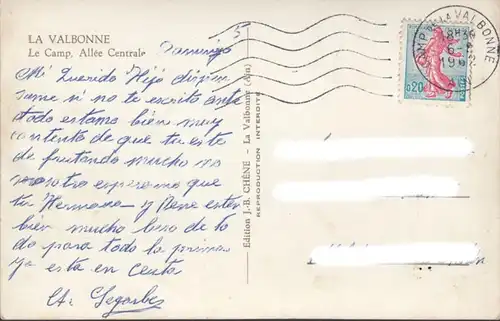 LA VALBONNE
Le Camp, Allée Centrale
Domingo
Mi Querido Hijo
same si no te escrito ante
todo estamo bien muy
contenta de que tu este
de frutando mucho no
nosotro esperamo que
tu Hermana y Rene este
bien mucho beso de to
do para todo la prima
ya esta en Ceuta
Édition J.-B. CHÊNE - La Valbonne (Ain)
REPRODUCTION INTERDITE
CAMP DE LA VALBONNE
18H30
0,20